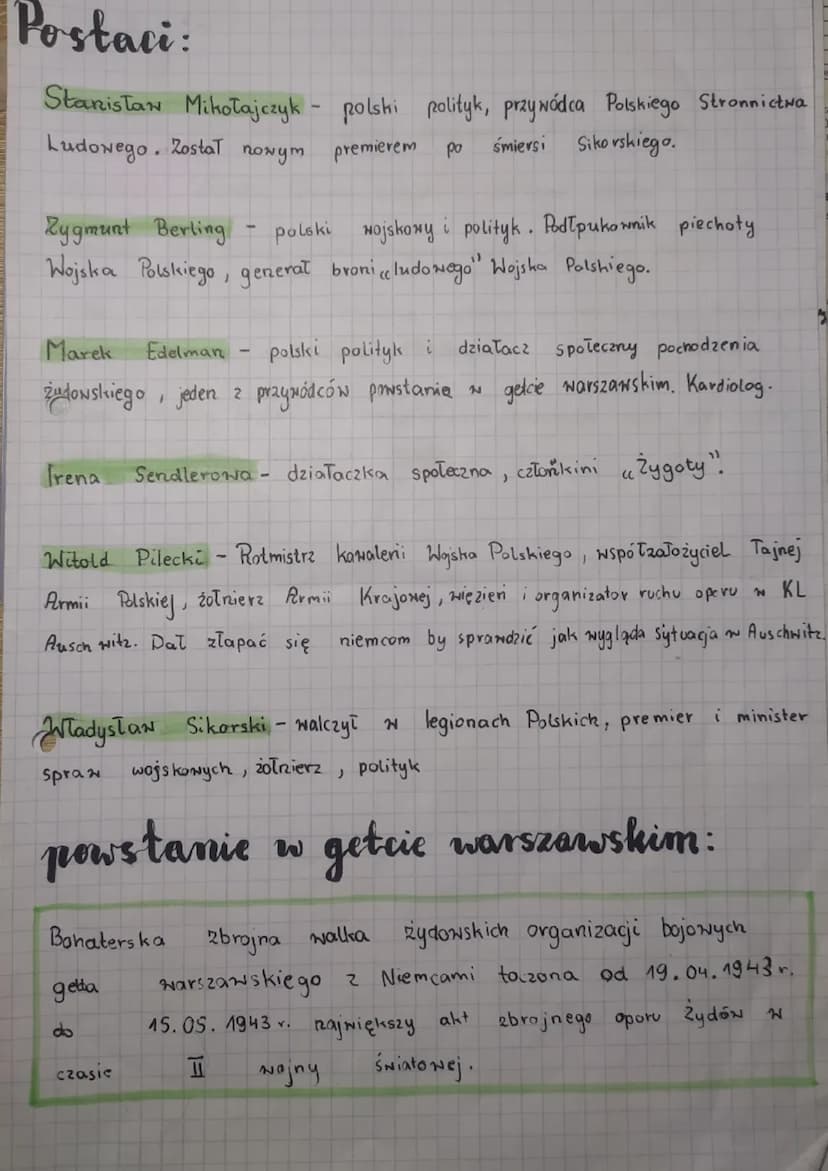 Postaci:
Stanisław Mikołajczyk - polski polityk, przywódca Polskiego Stronnictwa
Ludowego. Został nowym premierem po śmiersi Sikorskiego.
Zygmunt Berling - polski wojskowy i polityk. Podłpukownik piechoty
Wojska Polskiego, generał broni „ludowego” Wojska Polskiego.
Marek Edelman - polski polityk i działacz społeczny pochodzenia
żydowskiego, jeden z przywódców powstania w getcie warszawskim. Kardiolog.
Irena Sendlerowa - działaczka społeczna, człońkini „Żygoty”.
Witold Pilecki - Rotmistrz kawalerii Wojska Polskiego, współzałożyciel Tajnej
Armii Polskiej, żołnierz Armii Krajowej, więzień i organizator ruchu oporu w KL
Auschwitz. Dał złapać się niemcom by sprawdzić jak wygląda sytuacja w Auschwitz.
Władysław Sikorski - walczył w legionach Polskich, premier i minister
spraw wojskowych, żołnierz, polityk
powstanie w getcie warszawskim:
Bohaterska zbrojna walka żydowskich organizacji bojowych
getta warszawskiego z Niemcami toczona od 19.04.1943 r.
do 15.05.1943 r. największy akt zbrojnego oporu Żydów w
czasie II wojny światowej.